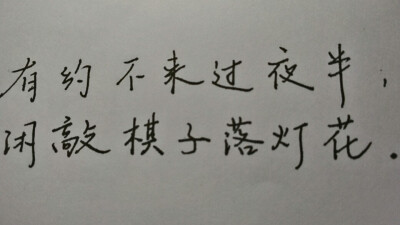 有约不来过夜半，
闲敲棋子落灯花.